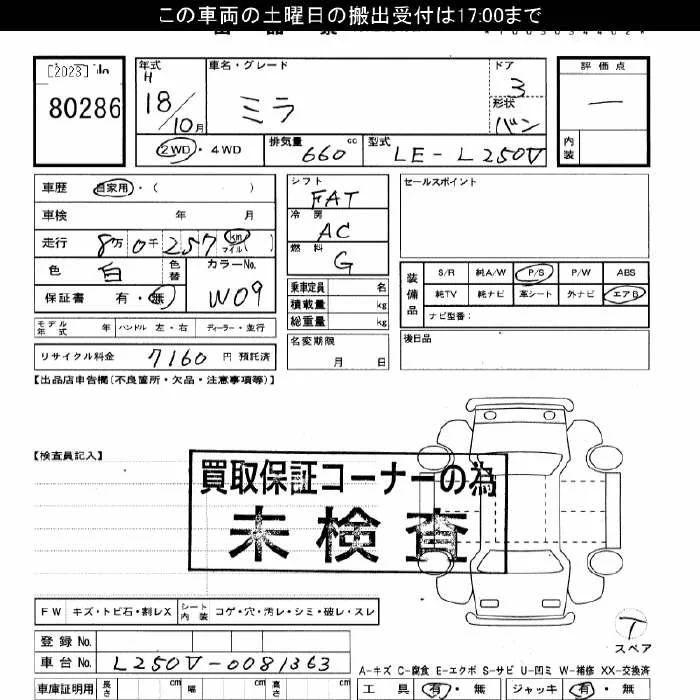 この車両の土曜日の搬出受付は17:00まで
[2023]
80286
年式
H
18/10月
車名・グレード
ミラ
ドア
3
形状
バン
評価点
―
内装
2WD・4WD
排気量 660 cc
型式 LE-L250V
車歴 自家用・( )
車検 年 月
走行 8万 0千 257 km マイル( )
色 白 色替
カラーNo.
W09
保証書 有・無
モデル年式 年 ハンドル 左・右 ディーラー・並行
リサイクル料金 7160 円 預託済
シフト
FAT
冷房
AC
燃料
G
乗車定員 名
積載量 kg
総重量 kg
名変期限
月 日
セールスポイント
装備品
S/R 純A/W P/S P/W ABS
純TV 純ナビ 革シート 外ナビ エアB
ナビ型番:
後日品
【出品店申告欄(不良箇所・欠品・注意事項等)】
【検査員記入】
買取保証コーナーの為
未検査
FW キズ・トビ石・割レX シート内装 コゲ・穴・汚レ・シミ・破レ・スレ
登録No.
車台No. L250V-0081363
車庫証明用 長さ cm 幅 cm 高さ cm
T
スペア
A-キズ C-腐食 E-エクボ S-サビ U-凹ミ W-補修 XX-交換済
工具 有・無 ジャッキ 有・無